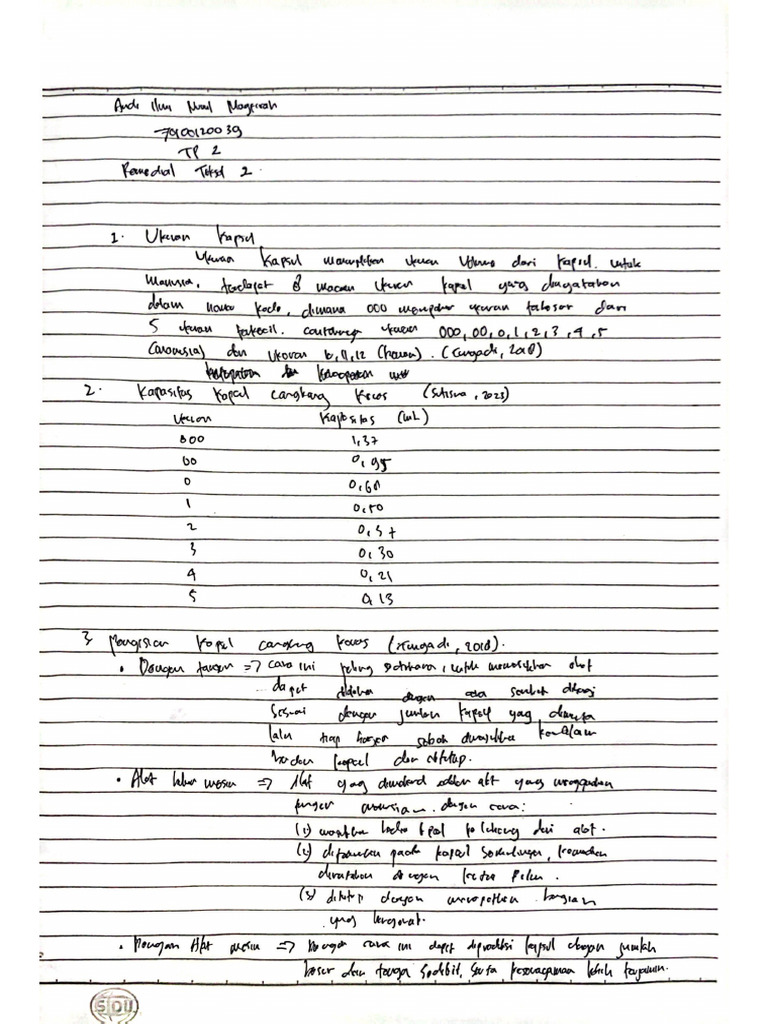 Andi Ilmi Nurul Magfirah
7900120039
TP 2
Remedial Teksd 2.
1. Ukuran Kapsul
Ukuran Kapsul menunjukkan ukuran Volume dari kapsul. untuk
Manusia, terdapat 8 macam Ukuran kapsul yang dinyatakan
dalam nomor kode, dimana 000 ukuran terbesar dan
5 ukuran terkecil. contohnya ukuran 000, 00, 0, 1, 2, 3, 4, 5
(manusia) dan Ukuran 10, 11, 12 (hewan). (, 2018)
2. Kapasitas Kapsul Cangkang Keras (Sutisna, 2023)
Ukuran Kapasitas (mL)
000 1,37
00 0,95
0 0,68
1 0,50
2 0,37
3 0,30
4 0,21
5 0,13
3 Pengisian Kapsul cangkang keras (, 2018).
• Dengan tangan => cara ini paling sederhana, untuk memasukkan obat
dapat dilakukan dengan cara serbuk dibagi
Sesuai dengan jumlah kapsul yang diminta
lalu tiap bagian serbuk dimasukkan kedalam
badan kapsul dan ditutup.
• Alat bukan mesin => Alat yang dimaksud adalah alat yang menggunakan
tangan manusia. dengan cara:
(1) masukkan badan kapsul kelubang dari alat.
(2) kapsul, kemudian
diratakan dengan kertas film.
(3) ditutup dengan merapatkan bagian
yang bergerak.
• Dengan Alat mesin => Dengan cara ini dapat diproduksi kapsul dengan jumlah
besar dan tenaga sedikit, serta keseragaman lebih terjamin.
SIDU